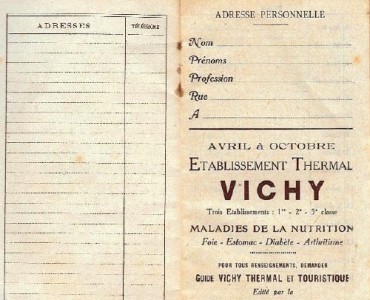 ADRESSES
TÉLÉPHONE
ADRESSE PERSONNELLE
Nom
Prénoms
Profession
Rue
A
AVRIL à OCTOBRE
ETABLISSEMENT THERMAL
VICHY
Trois Etablissements : 1re - 2e - 3e classe
MALADIES DE LA NUTRITION
Foie - Estomac - Diabète - Arthritisme
POUR TOUS RENSEIGNEMENTS, DEMANDER
GUIDE VICHY THERMAL ET TOURISTIQUE
Edité par la